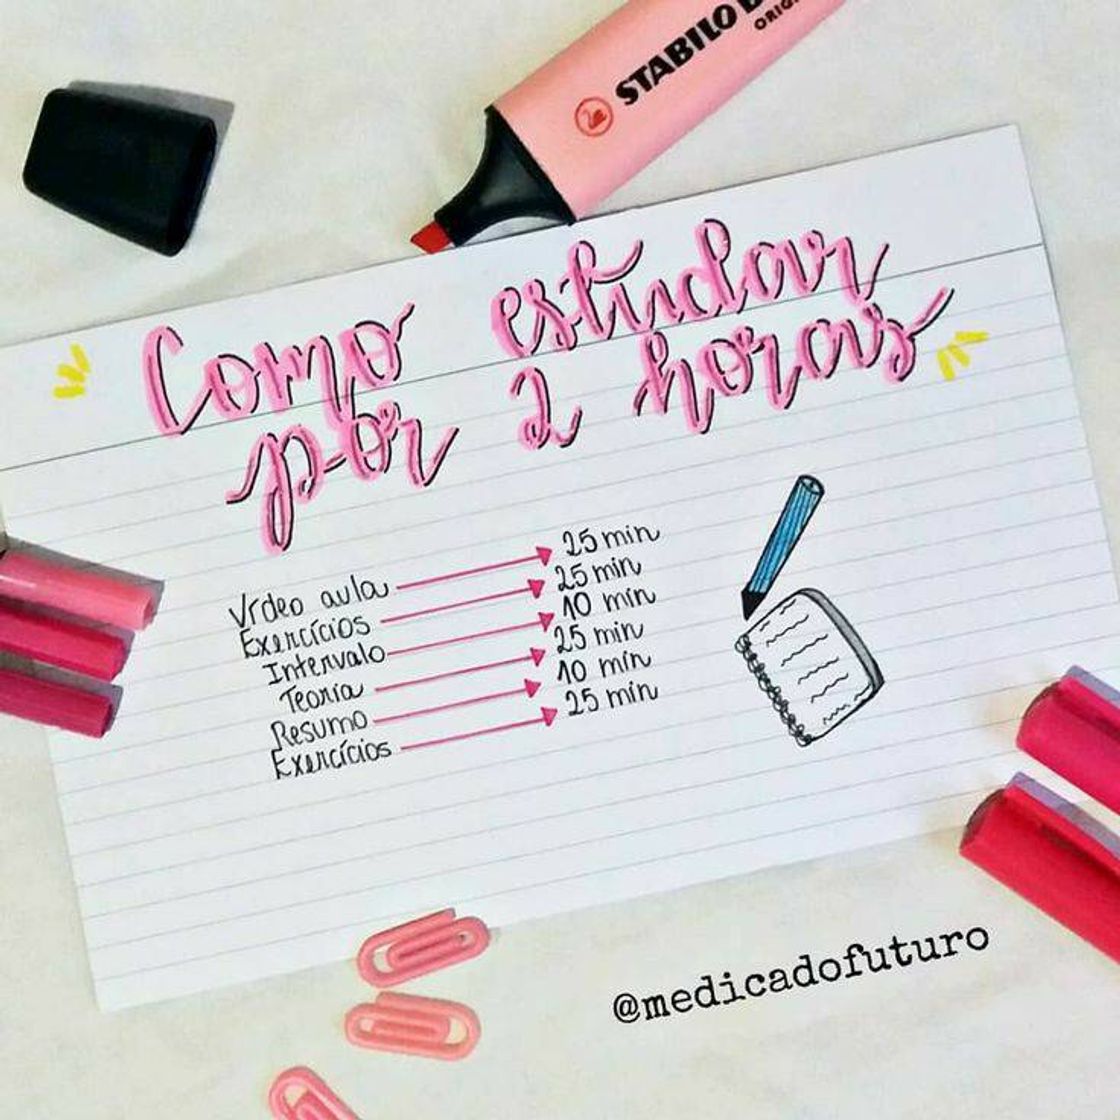 STABILO
ORIG
Como estudar
por 2 horas
Vídeo aula 25 min
Exercícios 25 min
Intervalo 10 min
Teoria 25 min
Resumo 10 min
Exercícios 25 min
@medicadofuturo